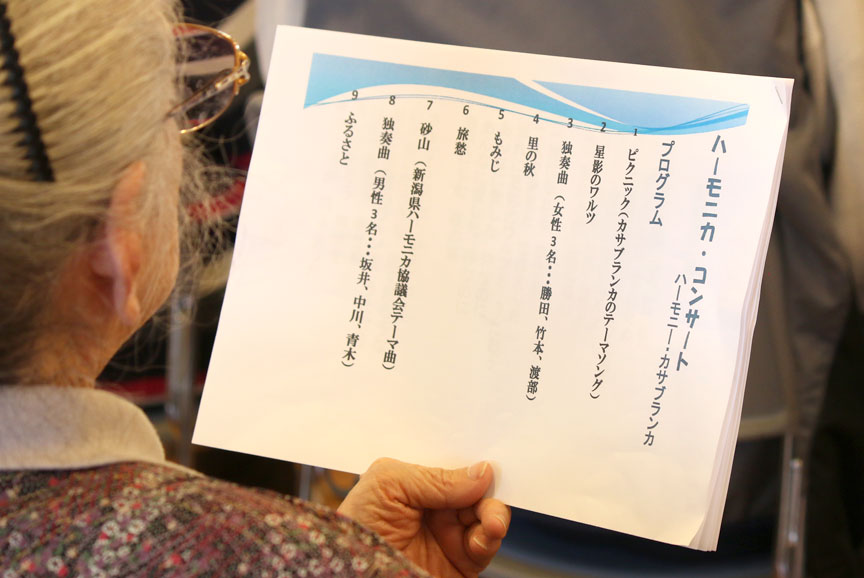 ハーモニカ・コンサート
ハーモニー・カサブランカ
プログラム
1 ピクニック(カサブランカのテーマソング)
2 星影のワルツ
3 独奏曲(女性3名・・・勝田、竹本、渡部)
4 里の秋
5 もみじ
6 旅愁
7 砂山(新潟県ハーモニカ協議会テーマ曲)
8 独奏曲(男性3名・・・坂井、中川、青木)
9 ふるさと